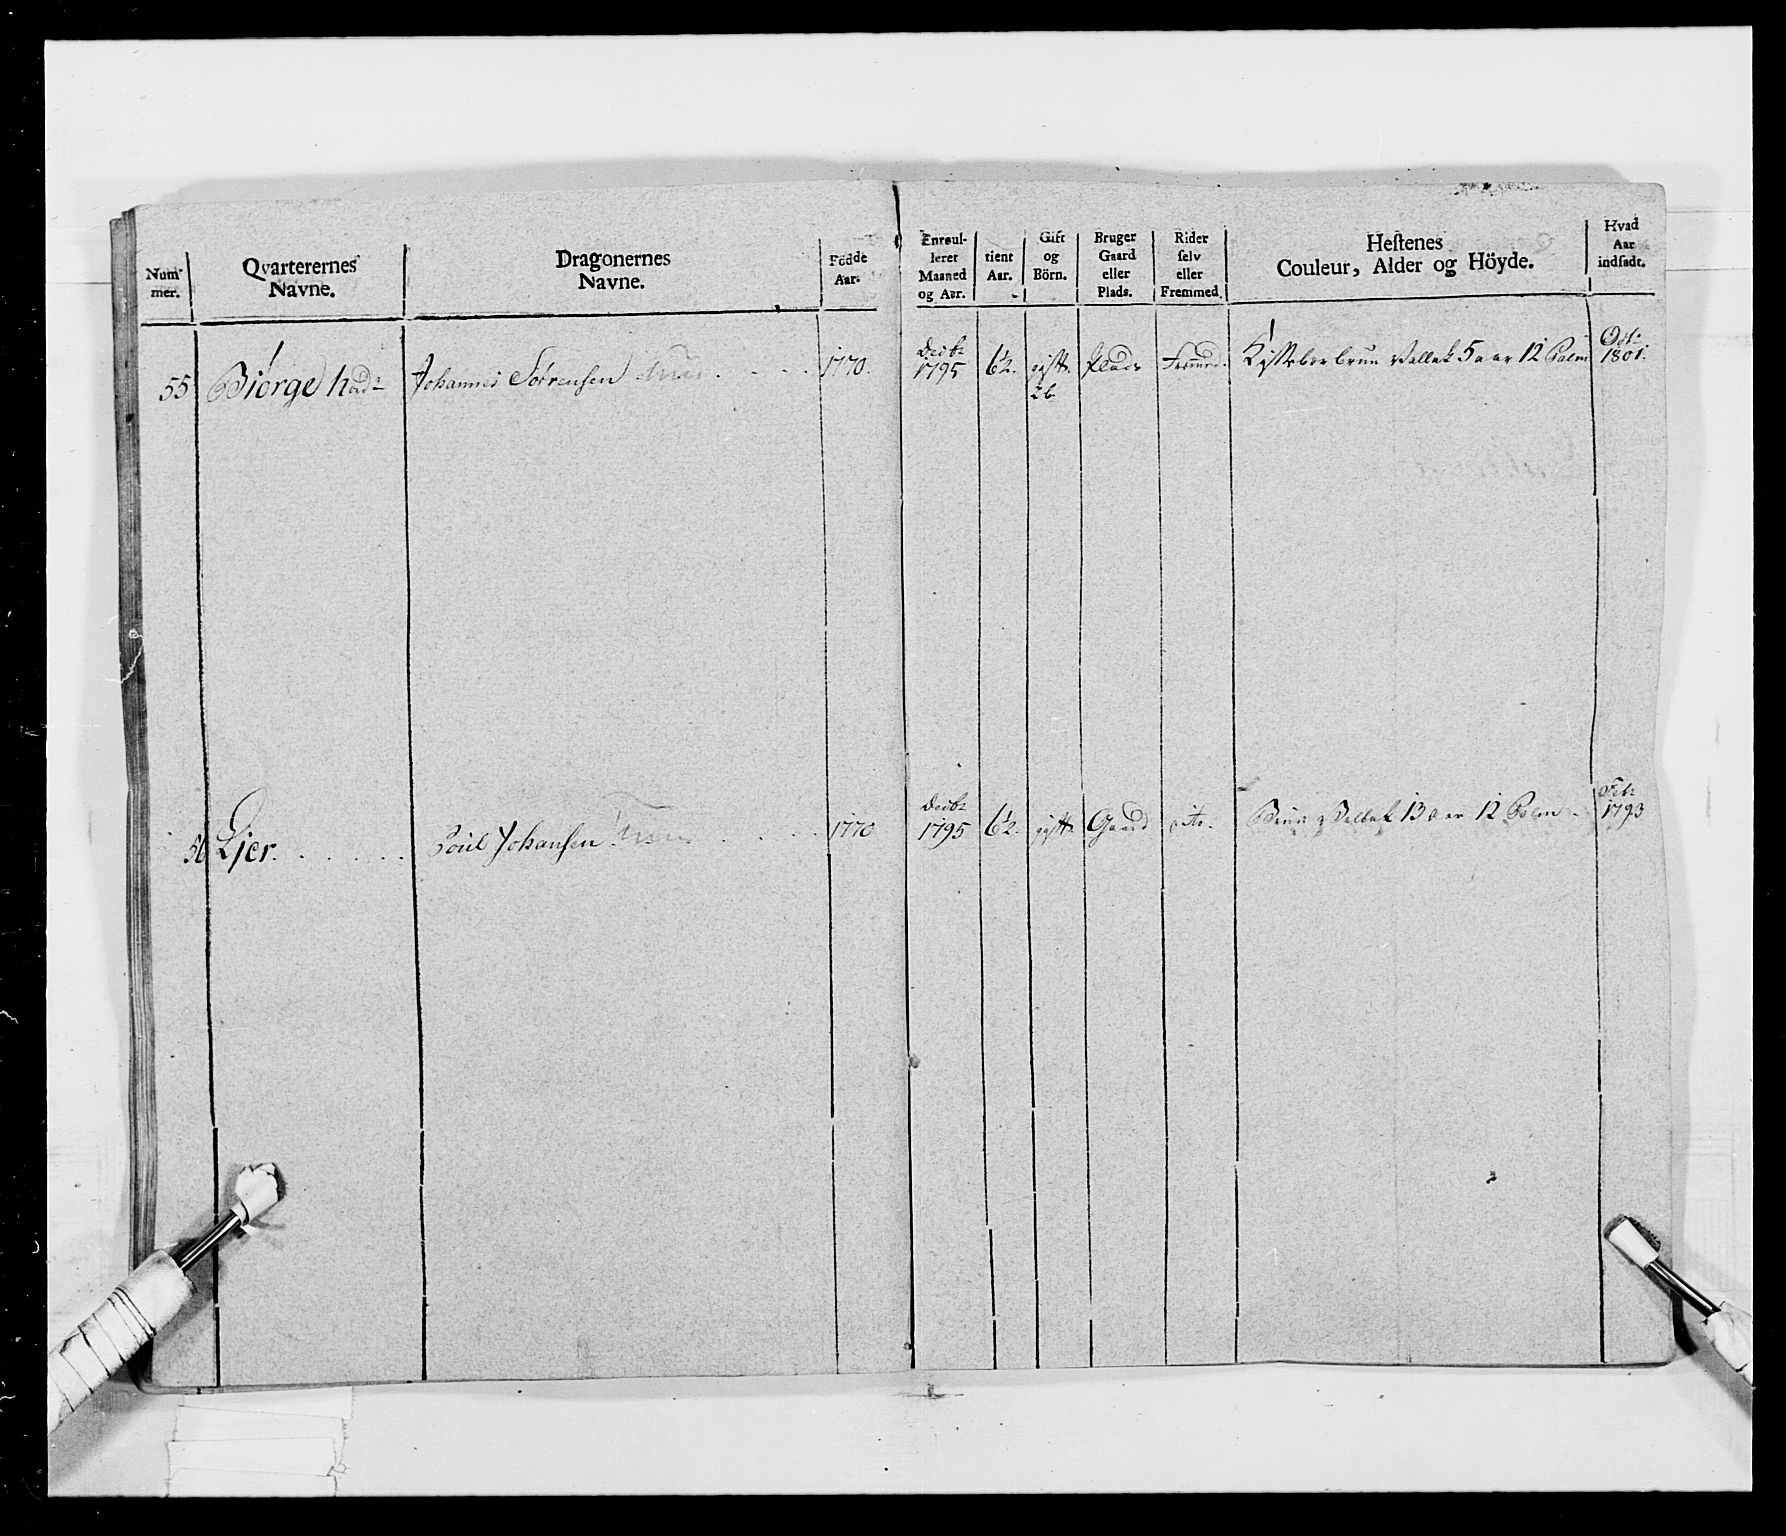 Num-
mer.
Qvarterernes
Navne.
Dragonernes
Navne.
Födde
Aar.
Enroul-
leret
Maaned
og Aar.
tient
Aar.
Gift
og
Börn.
Bruger
Gaard
eller
Plads.
Rider
selv
eller
Fremmed.
Hestenes
Couleur, Alder og Höyde.
Hvad
Aar
indsadt.
55 Biórge Johannes Sörensen 1770. Decbr 1795 6½. gift. 2b Plads Fremed. Kystebærbrun Vallak 5 aar 12 Palm Oct: 1801.
56 Lier. Poül Johansen 1770 Decbr 1795 6½. gift. Gaard dito. Brun Vallak 13 aar 12 Palm. Feb: 1793